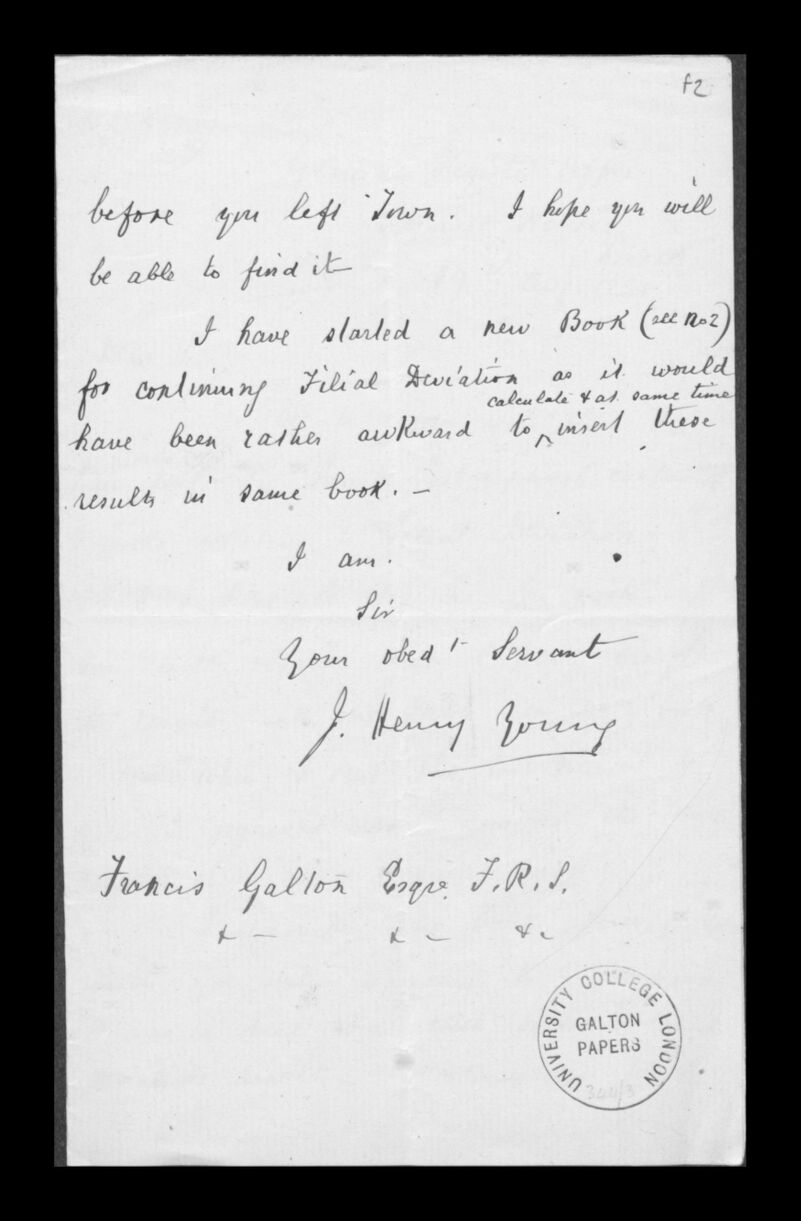 f2
before you left Town. I hope you will
be able to find it
I have started a new Book (see No 2)
for continuing Filial Deviation as it would
calculate & at same time
have been rather awkward to ^ insert these
results in same book. —
I am.
Sir
Your obedt Servant
J. Henry Young
Francis Galton Esqre. F.R.S.
& — & — &c
UNIVERSITY COLLEGE LONDON
GALTON
PAPERS